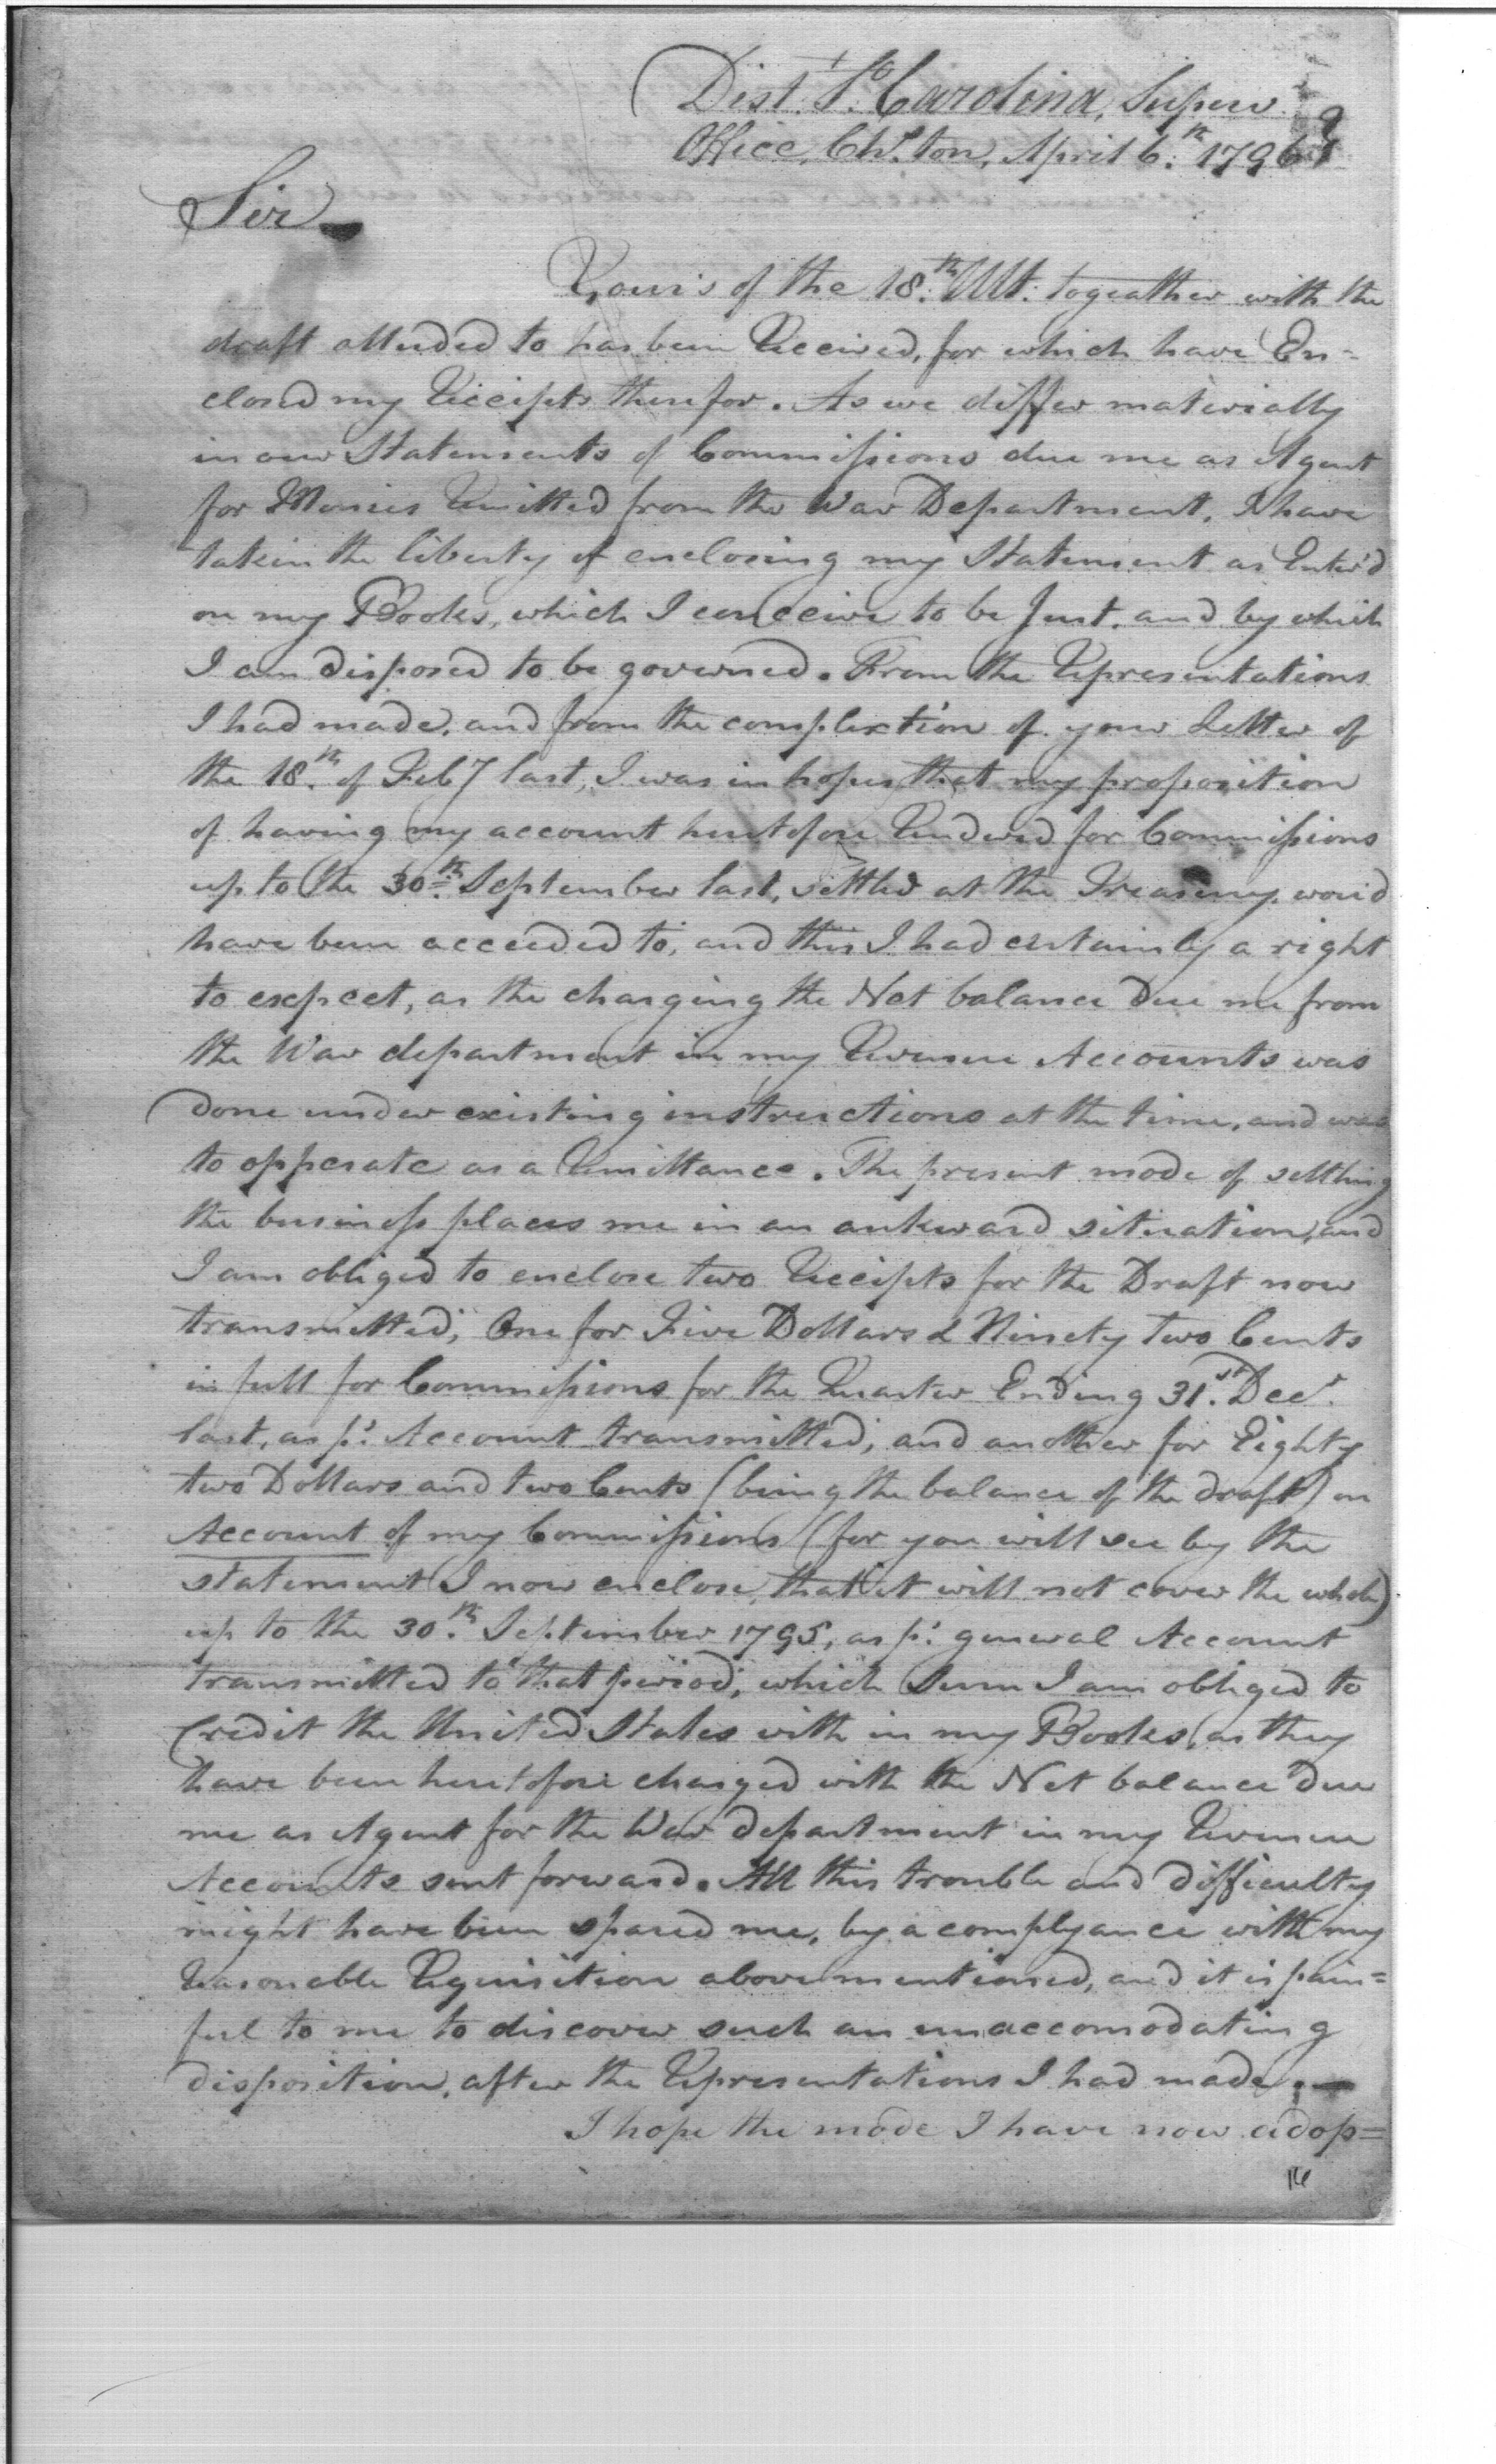 Dist. So. Carolina, Superv.
Office, Chs.ton, April 6.th 1796
Sir
Your's of the 18.th Ult. togeather with the
draft alluded to has been Received, for which have En=
closed my Receipts therefor. As we differ materially
in our Statements of Commissions due me as Agent
for Monies Remitted from the War Department, I have
taken the liberty of enclosing my Statement as Enter'd
on my Books, which I conceive to be Just, and by which
I am disposed to be governed. From the Representations
I had made, and from the complection of your Letter of
the 18.th of Feby last, I was in hopes that my proposition
of having my account heretofore Rendered for Commissions
up to the 30th September last, settled at the Treasury, would
have been acceeded to, and this I had certainly a right
to expect, as the charging the Net balance Due me from
the War department in my Revenue Accounts was
done under existing instructions at the time, and was
to opperate as a Remittance. The present mode of settling
the business places me in an aukward situation, and
I am obliged to enclose two Receipts for the Draft now
transmitted; One for Five Dollars & Ninety two Cents
in full for Commissions for the Quarter Ending 31.st Decr.
last, as pr. Account transmitted, and another for Eighty
two Dollars and two Cents (being the balance of the draft) on
Account of my Commissions (for you will see by the
statement I now enclose, that it will not cover the whole)
up to the 30.th September 1795, as pr. general Account
transmitted to that period; which Sum I am obliged to
Credit the United States with in my Books, as they
have been heretofore charged with the Net balance Due
me as Agent for the War department in my Revenue
Accounts sent forward. All this trouble and difficulty
might have been spared me, by a complyance with my
Reasonable Requisition above mentioned, and it is pain=
ful to me to discover such an unaccomodating
disposition, after the Representations I had made. —
I hope the mode I have now adop=